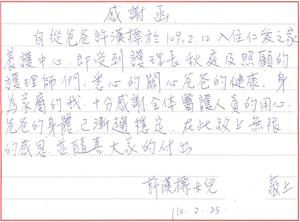 感謝函
自從爸爸許漢標於109.2.12入住仁愛之家
養護中心,即受到護理長秋庭及照顧的
護理師們,悉心的關心爸爸的健康,身
為家屬的我,十分感謝全体醫護人員的用心,
爸爸的身體已漸趨穩定,在此致上無限
的感恩並隨喜大家的付出
許漢標女兒 敬上
110.2.25.